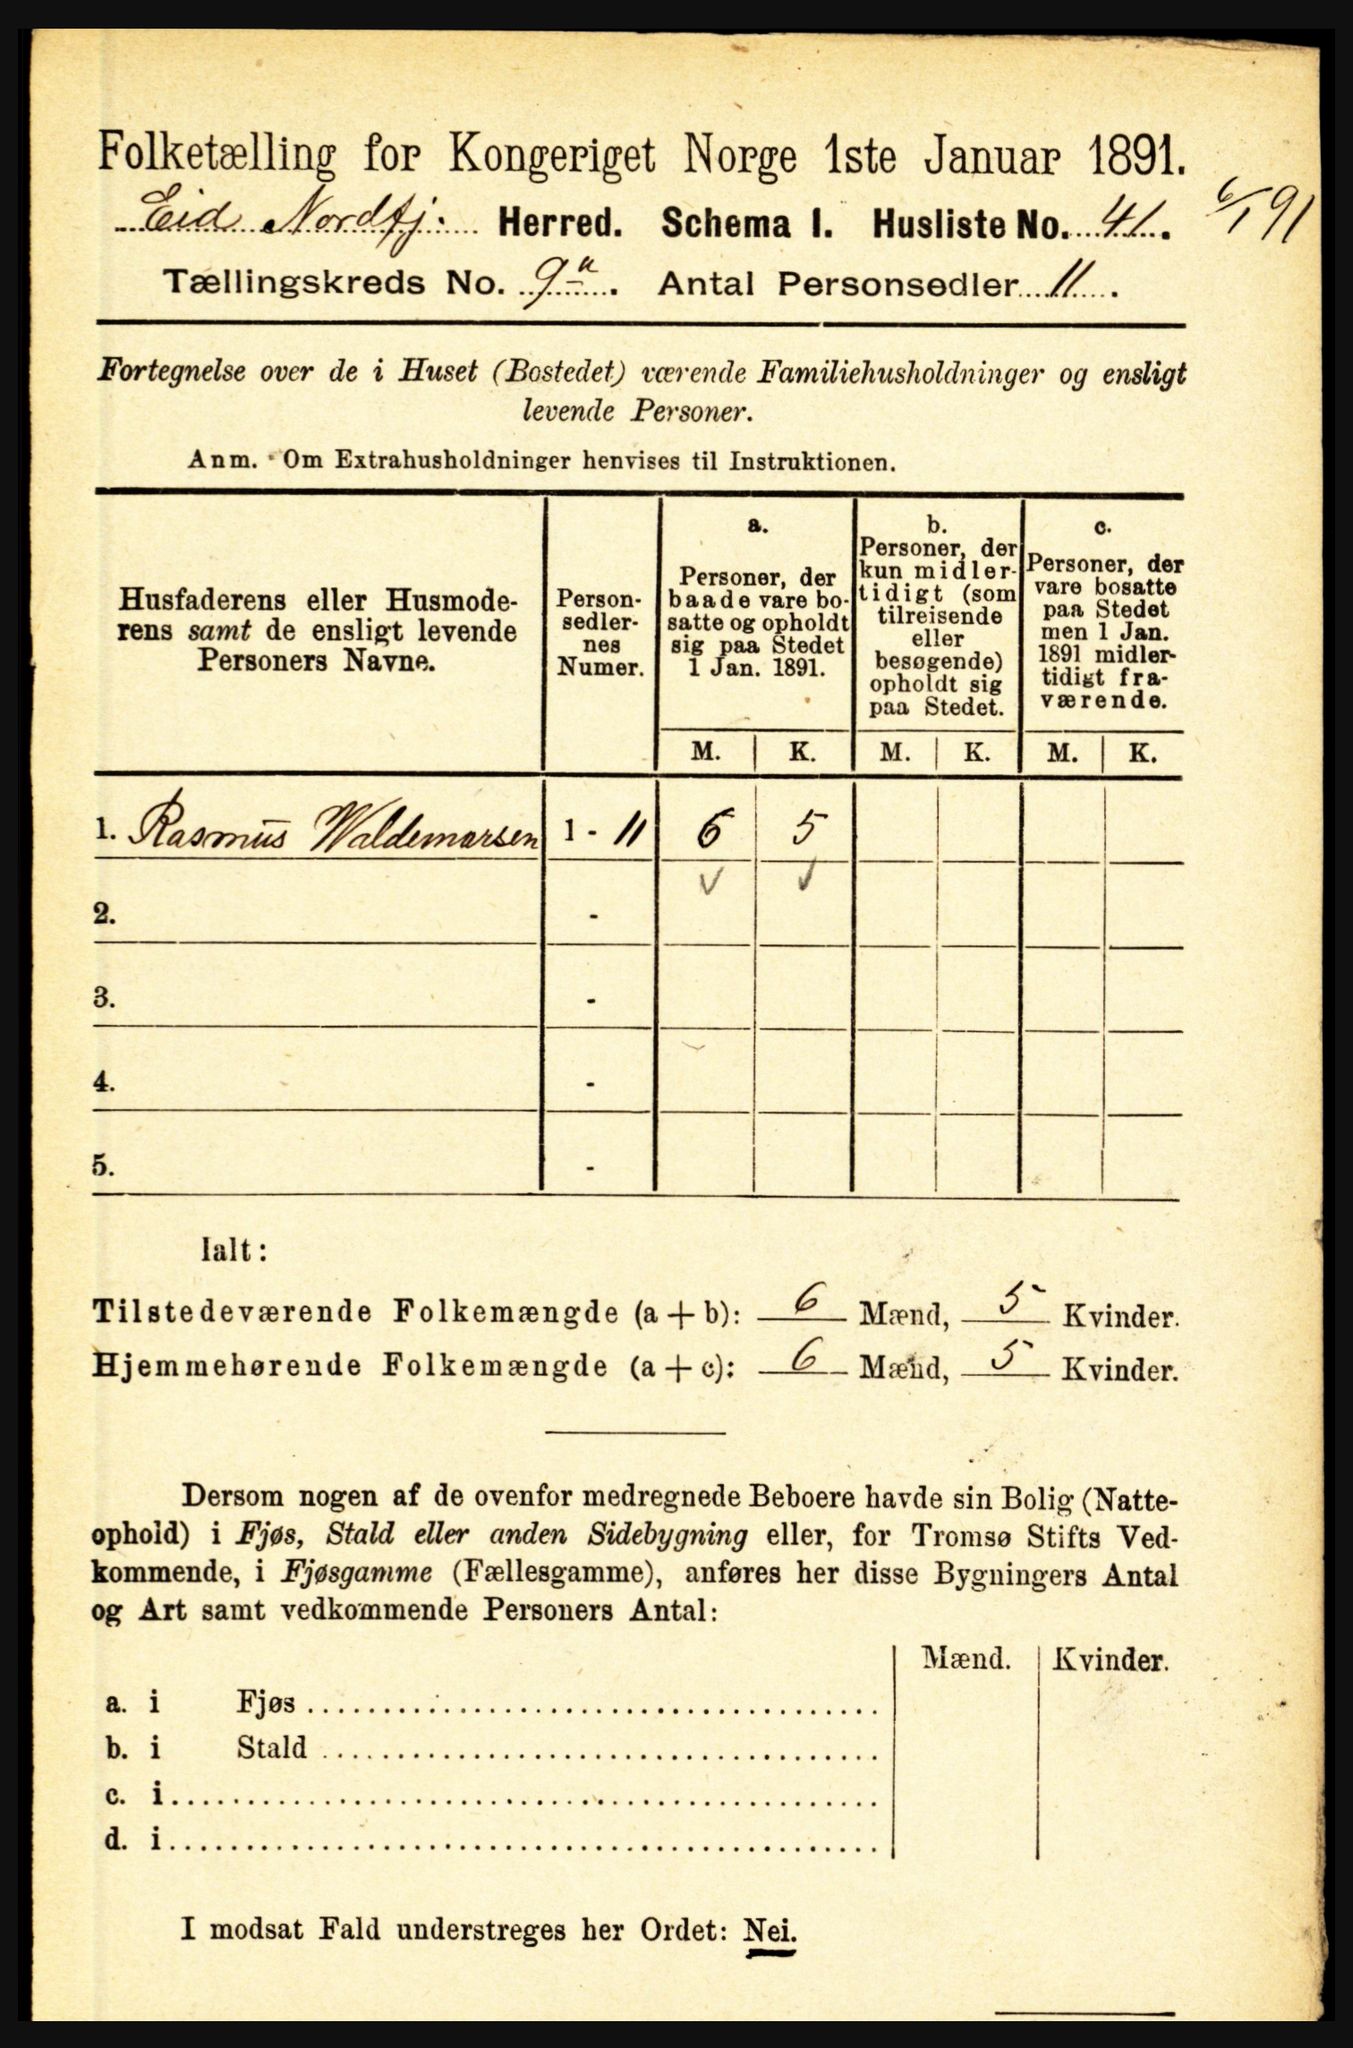 Folketælling for Kongeriget Norge 1ste Januar 1891.
Eid Nordfj. Herred. Schema I. Husliste No. 41.
6/1 91
Tællingskreds No. 9a. Antal Personsedler 11.
Fortegnelse over de i Huset (Bostedet) værende Familiehusholdninger og ensligt
levende Personer.
Anm. Om Extrahusholdninger henvises til Instruktionen.
Husfaderens eller Husmode-
rens samt de ensligt levende
Personers Navne.
Person-
sedler-
nes
Numer.
a.
Personer, der
baade vare bo-
satte og opholdt
sig paa Stedet
1 Jan. 1891.
b.
Personer, der
kun midler-
tidigt (som
tilreisende
eller
besøgende)
opholdt sig
paa Stedet.
c.
Personer, der
vare bosatte
paa Stedet
men 1 Jan.
1891 midler-
tidigt fra-
værende.
M. K. M. K. M. K.
1. Rasmus Waldemarsen 1 - 11 6 5
2. -
3. -
4. -
5. -
Ialt:
Tilstedeværende Folkemængde (a + b): 6 Mænd, 5 Kvinder.
Hjemmehørende Folkemængde (a + c): 6 Mænd, 5 Kvinder.
Dersom nogen af de ovenfor medregnede Beboere havde sin Bolig (Natte-
ophold) i Fjøs, Stald eller anden Sidebygning eller, for Tromsø Stifts Ved-
kommende, i Fjøsgamme (Fællesgamme), anføres her disse Bygningers Antal
og Art samt vedkommende Personers Antal:
Mænd. Kvinder.
a. i Fjøs
b. i Stald
c. i
d. i
I modsat Fald understreges her Ordet: Nei.